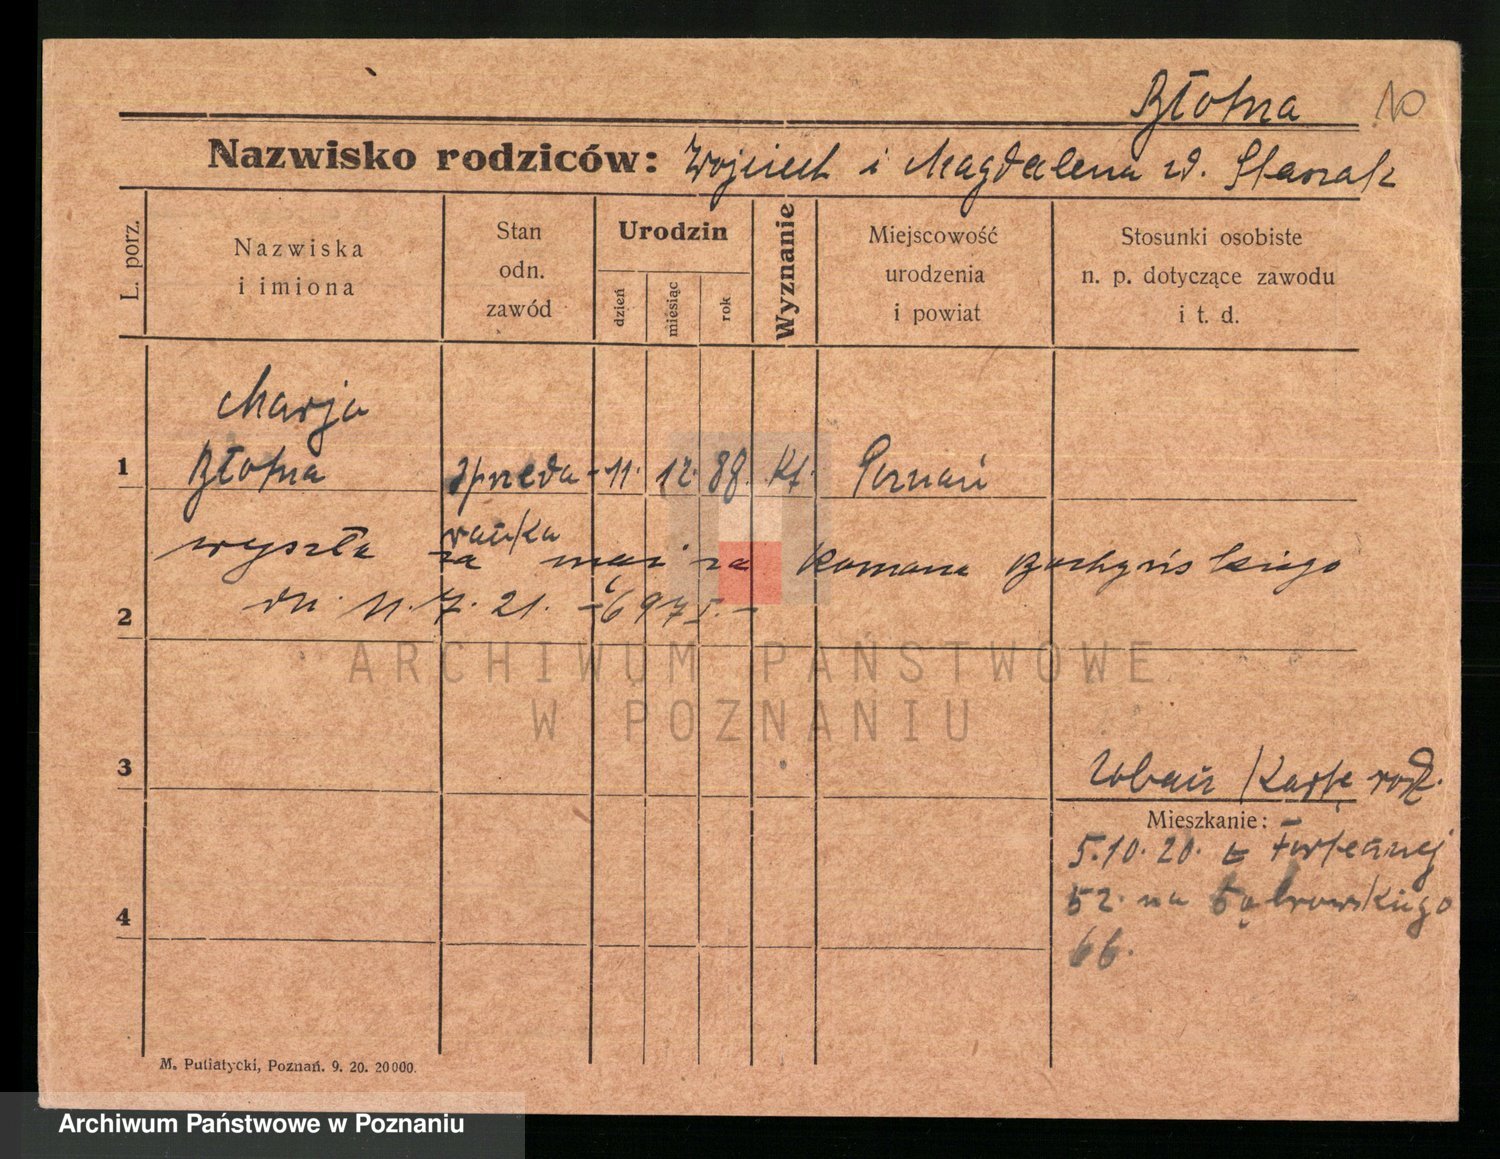 Błotna
Nazwisko rodziców: Wojciech i Magdalena zd. Staszak
L. porz.
Nazwiska
i imiona
Stan
odn.
zawód
Urodzin
dzień
miesiąc
rok
Wyznanie
Miejscowość
urodzenia
i powiat
Stosunki osobiste
n. p. dotyczące zawodu
i t. d.
Marja
1 Błotna spreda- 11. 12. 88. kt. Poznań
wyszła za mąż za Romana
2 dn. 11. 7. 21. - 6975. -
ARCHIWUM PAŃSTWOWE
W POZNANIU
3 Zobacz kartę rodz.
Mieszkanie:
5.10.20. z Fortecznej
52. na Dąbrowskiego
4 66.
M. Putiatycki, Poznań. 9. 20. 20000.
Archiwum Państwowe w Poznaniu